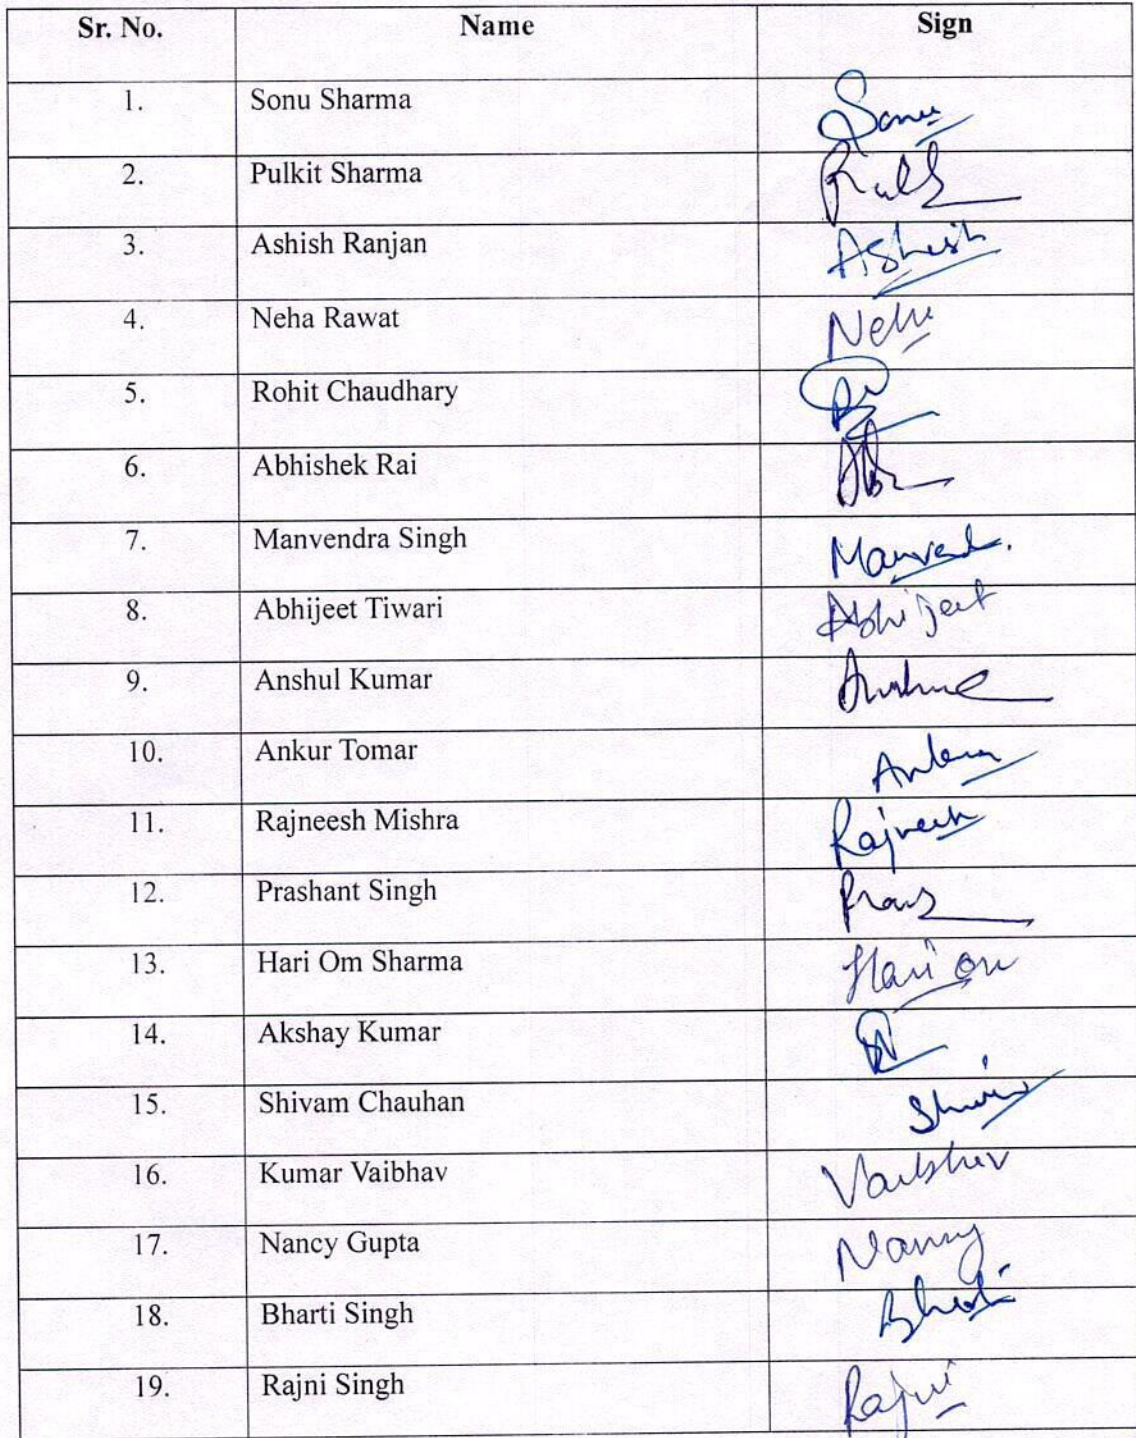 Sr. No. Name Sign
1. Sonu Sharma Sonu
2. Pulkit Sharma
3. Ashish Ranjan Ashish
4. Neha Rawat Neha
5. Rohit Chaudhary
6. Abhishek Rai
7. Manvendra Singh
8. Abhijeet Tiwari Abhijeet
9. Anshul Kumar
10. Ankur Tomar
11. Rajneesh Mishra Rajneesh
12. Prashant Singh
13. Hari Om Sharma Hari Om
14. Akshay Kumar
15. Shivam Chauhan
16. Kumar Vaibhav Vaibhav
17. Nancy Gupta Nancy
18. Bharti Singh Bharti
19. Rajni Singh Rajni